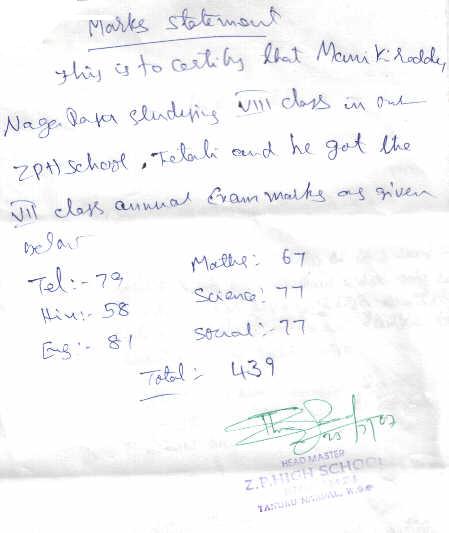 Marks Statement
This is to certify that Manikireddy
Naga Raju studying VIII class in our
ZPH School, Tetali and he got the
VII class annual Exam marks as given
below
Tel:- 79 Maths: 67
Hin:- 58 Science: 77
Eng:- 81 Social:- 77
Total:- 439
HEAD MASTER
Z.P.HIGH SCHOOL
TANUKU MANDAL, W.G.